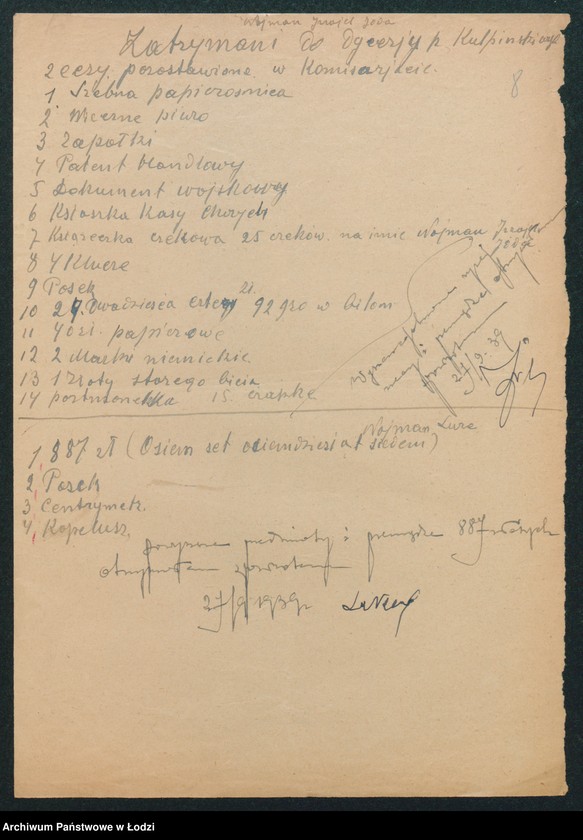 Nojman Izrajel Joda
Zatrzymani do dyczerji p. Kulpinskiego
8
Zeczy pozostawione w Komisarjacie.
1 Srebna papierosnica
2 Wieczne piuro
3 Zapałki
4 Patent Handlowy
5 Dokument wojskowy
6 Ksioszka Kasy Chorych
7 Ksiązeczka czekowa 25 czeków na imie Nojman Izrajel
Joda
8 4 Klucze
9 Posek
10 24 Dwadziescia cztery zł. 92 gro w bilonie
11 40 zł. papierowe
12 2 Marki niemickie
13 1 Zloty starego bicia
14 portmonetka 15. czapke
Wymienione
27/9.39
Nojman Lura
1, 887 zł (Osiem set osiemdziesiąt siedem)
2, Posek
3 Centrymetr.
4, Kopelusz,
Powyższe przedmioty i pieniądze 887 złotych
otrzymałam zpowrotem
27/9 1939r